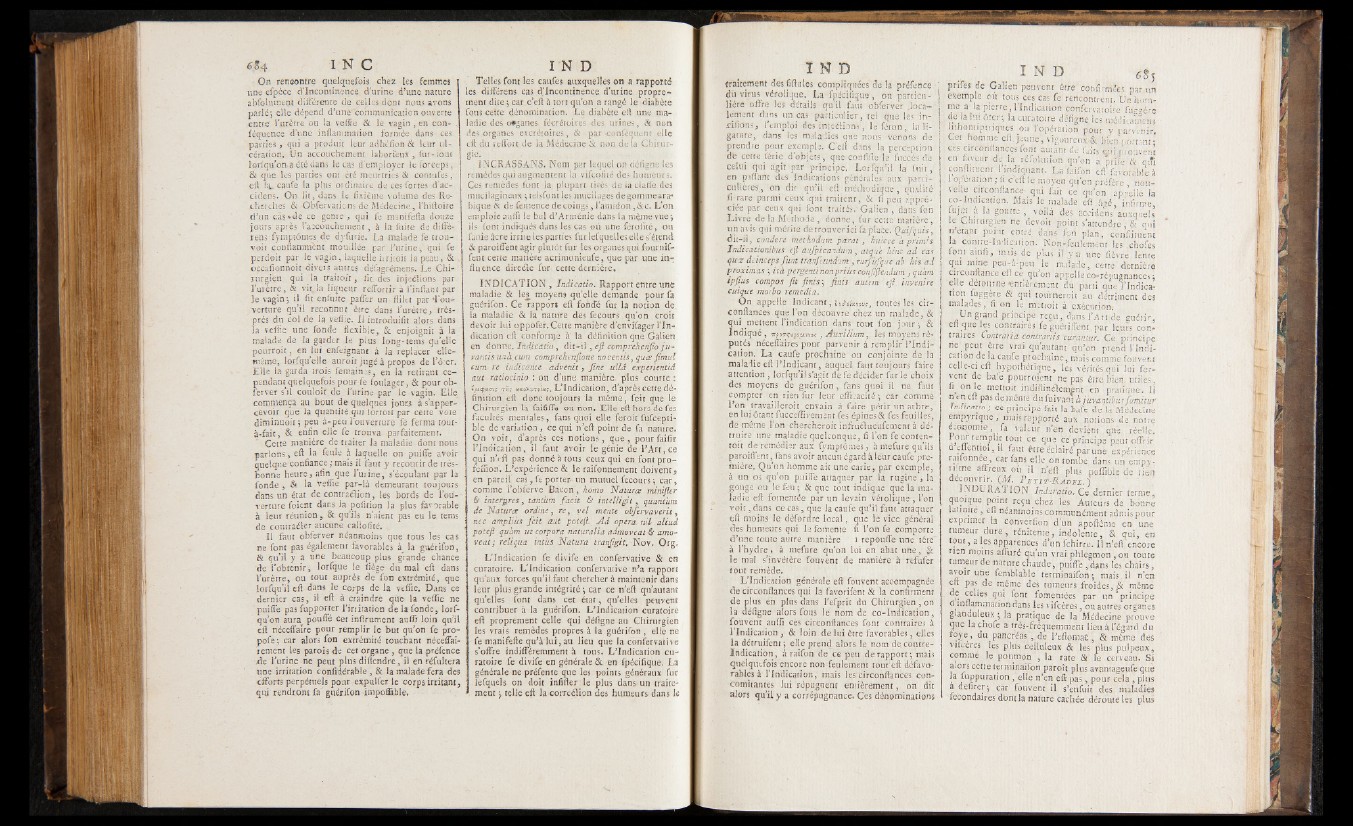 684 I N C
I N D
On rencontre quelquefois chez les femmes
une espèce d'Incontinence d'urine d'une nature
absolument différente de celles dont nous avons
parlé; elle dépend d'une communication ouverte
entre l'urètre ou la vessie & le vagin, en con-
séquence d'une inflammation formée dans ces
parties, qui a produit leur adhésion & leur ul-
cération. Un accouchement laborieux, sur-tout
lorsqu'on a été dans le cas d'employer le forceps,
& que les parties ont été meurtries & contuses,
est la cause la plus ordinaire de ces sortes d'ac-
cidens. On lit, dans le sixième volume des Re-
cherches & Observations de Médecine, l'histoire
d'un cas de ce genre, qui se manifesta douze
jours après l'accouchement, à la suite de diffé-
rens symptômes de dysurie. La malade se trou-
voit constamment mouillée par l'urine, qui se
perdoit par le vagin, laquelle irritoit la peau, &
occasionnoit divers autres désagrémens. Le Chi-
rurgien qui la traitoit, fit des injections par
l'urètre, & vit la liqueur ressortir à l'instant par
le vagin; il fit ensuite passer un stilet par l'ou-
verture qu'il reconnut être dans l'urètre, très-
près du col de la vessie. Il introduisit alors dans
la vessie une sonde flexible, & enjoignit à la
malade de la garder le plus long-tems qu'elle
pourroit, en lui enseignant à la replacer elle-
même, lorsqu'elle auroit jugé à propos de l'ôter.
Elle la garda trois semaines, en la retirant ce-
pendant quelquefois pour se soulager, & pour ob-
server s'il couloit de l'urine par le vagin. Elle
commença au bout de quelques jours à s'apper-
cevoir que la quantité qui sortoit par cette voie
diminuoit; peu à-peu l'ouverture se ferma tout-
à-fait, & enfin elle se trouva parfaitement.
Cette manière de traiter la maladie dont nous
parlons, est la seule à laquelle on puisse avoir
quelque confiance; mais il faut y recourir de très-
bonne heure, afin que l'urine, s'écoulant par la
sonde, & la vessie par-là demeurant toujours
dans un état de contraction, les bords de l'ou-
verture soient dans la position la plus favorable
à leur réunion, & qu'ils n'aient pas eu le tems
de contracter aucune callosité.
Il faut observer néanmoins que tous les cas
ne sont pas également favorables à la guérison,
& qu'il y a une beaucoup plus grande chance
de l'obtenir, lorsque le siège du mal est dans
l'urètre, ou tout auprès de son extrémité, que
lorsqu'il est dans le corps de la vessie. Dans ce
dernier cas, il est à craindre que la vessie ne
puisse pas supporter l'irritation de la sonde, lors-
qu'on aura poussé cet instrument aussi loin qu'il
est nécessaire pour remplir le but qu'on se pro-
pose; car alors son extrémité touchant nécessai-
rement les parois de cet organe, que la présence
de l'urine ne peut plus distendre, il en résultera
une irritation considérable, & la malade fera des
efforts perpétuels pour expulser le corps irritant,
qui rendront sa guérison impossible.
Telles sont les causes auxquelles on a rapporté
les différens cas d'Incontinence d'urine propre-
ment dite; car c'est à tort qu'on a rangé le diabète
sous cette dénomination. Le diabète est une ma-
ladie des organes sécrétoires des urines, & non
des organes excrétoires, & par conséquent elle
est du ressort de la Médecine & non de la Chirur-
gie.
INCRASSANS. Nom par lequel on désigne les
remèdes qui augmentent la viscosité des humeurs.
Ces remèdes sont la plupart tirés de la classe des
mucilagineux; tels sont les mucilages de gomme ara-
bique & de semence de coings, l'amidon, &c. L'on
emploie aussi le bol d'Arménie dans la même vue;
ils sont indiqués dans les cas où une sérosité, ou
sanie âcre irrite les parties sur lesquelles elle s'étend
& paroissent agir plutôt sur les organes qui fournis-
sent cette matière acrimonieuse, que par une in-
fluence directe sur cette dernière.
INDICATION, Indicatio. Rapport entre une
maladie & les moyens qu'elle demande pour sa
guérison. Ce rapport est fondé sur la notion de
la maladie & la nature des secours qu'on croit
devoir lui opposer. Cette manière d'envisager l'In-
dication est conforme à la définition que Galien
en donne. Indicatio, dit-il, est comprehensio ju-
vantis unà cum comprehensione nocentis, quæ simul
cum re indicante advenit, sine ullâ experientiâ
aut ratiocinio: ou d'une manière plus courte:
L'Indication, d'après cette dé-
finition est donc toujours la même, soit que le
Chirurgien la saisisse ou non. Elle est hors de ses
facultés mentales, sans quoi elle seroit suscepti-
ble de variation, ce qui n'est point de sa nature.
On voit, d'après ces notions, que, pour saisir
l'Indication, il faut avoir le génie de l'Art, ce
qui n'est pas donné à tous ceux qui en font pro-
fession. L'expérience & le raisonnement doivent,
en pareil cas, se porter un mutuel secours; car,
comme l'observe Bacon, homo Naturæ minister
& interpres, tantum facit & intellegit, quantum
de Naturæ ordine, re, vel mente observaverit,
nec amplius scit aut potest. Ad opera nil aliud
potest quàm ut corpora naturalia admoveat & amo-
veat; reliqua intùs Natura transigit, Nov. Org.
L'Indication se divise en conservative & en
curatoire. L'Indication conservative n'a rapport
qu'aux forces qu'il faut chercher à maintenir dans
leur plus grande intégrité; car ce n'est qu'autant
qu'elles sont dans cet état, qu'elles peuvent
contribuer à la guérison. L'Indication curatoire
est proprement celle qui désigne au Chirurgien
les vrais remèdes propres à la guérison, elle ne
se manifeste qu'à lui, au lieu que la conservative
s'offre indifféremment à tous. L'Indication cu-
ratoire se divise en générale & en spécifique. La
générale ne présente que les points généraux sur
lesquels on doit insister le plus dans un traite-
ment; telle est la correction des humeurs dans le
I N D
I N D 685
traitement des fistules compliquées de la présence
du virus vérolique. La spécifique, ou particu-
lière offre les détails qu'il faut observer loca-
lement dans un cas particulier, tel que les in-
cisions, l'emploi des injections, le feton, la li-
gature, dans les maladies que nous venons de
prendre pour exemple. C'est dans la perception
de cette série d'objets, que consiste le succès de
celui qui agit par principe. Lorsqu'il la suit,
en passant des Indications générales aux parti-
culières, on dit qu'il est méthodique, qualité
si rare parmi ceux qui traitent, & si peu appré-
ciée par ceux qui sont traités. Galien, dans son
Livre de la Méthode, donne, sur cette matière,
un avis qui mérite de trouver ici sa place. Quisquis,
dit-il, condere methodum parat, huic à primis
Indicationibus est auspicandum, atque hinc ad eas
quæ deinceps sunt transeundum, rursùsque ab his ad
proximas; ità pergenti non prius consistendum, quàm
ipsius compos sit finis; finis autem est invenire
cuique morbo remedia.
On appelle Indicant, toutes les cir-
constances que l'on découvre chez un malade, &
qui mettent l'indication dans tout son jour, &
Indiqué, Auxilium, les moyens ré-
putés nécessaires pour parvenir à remplir l'Indi-
cation. La cause prochaine ou conjointe de la
maladie est l'Indicant, auquel faut toujours faire
attention, lorsqu'il s'agit de se décider sur le choix
des moyens de guérison, sans quoi il ne faut
compter en rien sur leur efficacité; car comme
l'on travailleroit envain à faire périr un arbre,
en lui ôtant successivement ses épines & ses feuilles,
de même l'on chercheroit infructueusement à dé-
truire une maladie quelconque, si l'on se conten-
toit de remédier aux symptômes, à mesure qu'ils
paroissent, sans avoir aucun égard à leur cause pre-
mière. Qu'un homme ait une carie, par exemple,
à un os qu'on puisse attaquer par la rugine, la
gouge ou le feu; & que tout indique que la ma-
ladie est fomentée par un levain vérolique, l'on
voit, dans ce cas, que la cause qu'il faut attaquer
est moins le désordre local, que le vice général
des humeurs qui le fomente si l'on se comporte
d'une toute autre manière repousse une tête
à l'hydre, à mesure qu'on lui en abat une, &
le mal s'invétère souvent de manière à refuser
tout remède.
L'Indication générale est souvent accompagnée
de circonstances qui la favorisent & la confirment
de plus en plus dans l'esprit du Chirurgien, on
la désigne alors sous le nom de co-Indication,
souvent aussi ces circonstances sont contraires à
l'Indication, & loin de lui être favorables, elles
la détruisent; elle prend alors le nom de contre-
Indication, à raison de ce peu de rapport; mais
quelquefois encore non seulement tout est défavo-
rables à l'Indication, mais les circonstances con-
comitantes lui répugnent entièrement, on dit
alors qu'il y a corrépugnance. Ces dénominations
prises de Galien peuvent être confirmées par un
exemple où tous ces cas se rencontrent. Un hom-
me a la pierre, l'Indication conservatoire suggère
de la lui ôter; la curatoire désigne les médicamens
lithontriptiques ou l'opération pour y parvenir.
Cet homme est jeune, vigoureux & bien portant;
ces circonstances sont autant de faits qui prouvent
en faveur de la résolution qu'on a prise & qui
constituent l'indiquant. La saison est favorable à
l'opération; si c'est le moyen qu'on préfère, nou-
velle circonstance qui fait ce qu'on appelle la
co-Indication. Mais le malade est âgé, infirme,
sujet à la goutte, voilà des accidens auxquels
le Chirurgien ne devoit point s'attendre, & qui
n'étant point entré dans son plan, constituent
la contre-Indication. Non-seulement les choses
sont ainsi, mais de plus il y a une fièvre lente
qui mine peu-à-peu le malade, cette dernière
circonstance est ce qu'on appelle co-répugnances;
elle détourne entièrement du parti que l'Indica-
tion suggère & qui tourneroit au détriment des
malades, si on le mettoit à exécution.
Un grand principe reçu, dans l'Art de guérir,
est que les contraires se guérissent par leurs con-
traires Contraria contrariis curantur. Ce principe
ne peut être vrai qu'autant qu'on prend l'Indi-
cation de la cause prochaine, mais comme souvent
celle-ci est hypothétique, les vérités qui lui ser-
vent de base pourroient ne pas être bien utiles,
si on le mettoit indistinctement en pratique. Il
n'en est pas de même du suivant à juvantibus sumitur
Indicatio; ce principe fait la base de la Médecine
empyrique, mais rapporté aux notions de notre
économie, sa valeur n'en devient que réelle.
Pour remplir tout ce que ce principe peut offrir
d'essentiel, il faut être éclairé par une expérience
raisonnée, car sans elle on tombe dans un empy-
risme affreux où il n'est plus possible de rien
découvrir. (M. PETIT-RADEL.)
INDURATION Induratio. Ce dernier terme,
quoique point reçu chez les Auteurs de bonne
latinité, est néanmoins communément admis pour
exprimer la conversion d'un apostème en une
tumeur dure, rénitente, indolente, & qui, en
tout, a les apparences d'un schirre. Il n'est encore
rien moins assuré qu'un vrai phlegmon, ou toute
tumeur de nature chaude, puisse, dans les chairs,
avoir une semblable terminaison; mais il n'en
est pas de même des tumeurs froides, & même
de celles qui sont fomentées par un principe
d'inflammation dans les viscères, ou autres organes
glanduleux; la pratique de la Médecine prouve
que la chose a très-fréquemment lieu à l'égard du
foye, du pancréas, de l'estomac, & même des
viscères les plus celluleux & les plus pulpeux,
comme le poumon, la rate & le cerveau. Si
alors cette terminaison paroît plus avantageuse que
la suppuration, elle n'en est pas, pour cela, plus
à desirer; car souvent il s'ensuit des maladies
secondaires dont la nature cachée déroute les plus